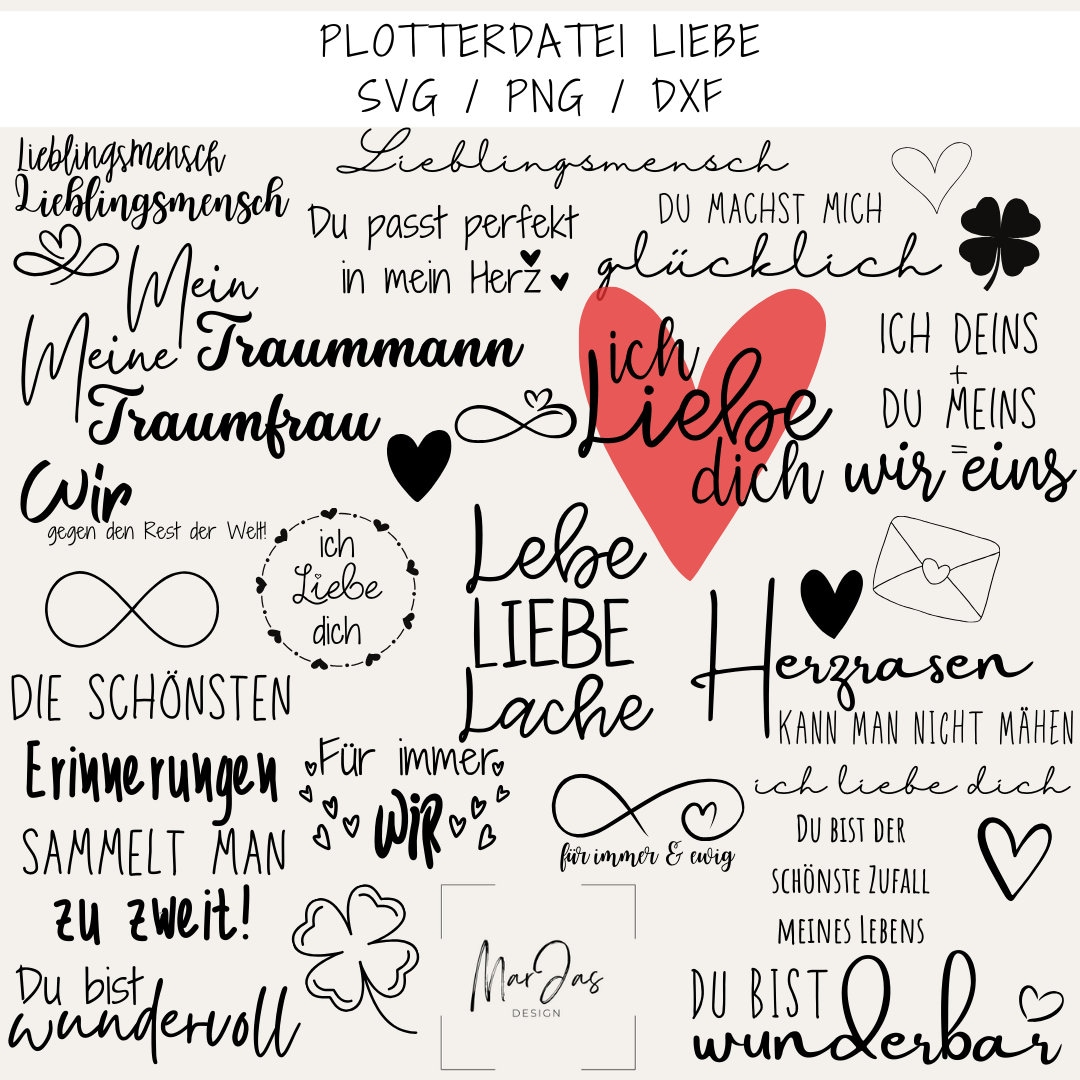 PLOTTERDATEI LIEBE
SVG / PNG / DXF
Lieblingsmensch
Lieblingsmensch
Lieblingsmensch
Du passt perfekt
in mein Herz
DU MACHST MICH
glücklich
Mein
Traummann
Meine
Traumfrau
ich
Liebe
dich
ICH DEINS
+
DU MEINS
=
wir eins
Wir
gegen den Rest der Welt!
ich
Liebe
dich
Lebe
LIEBE
Lache
Herzrasen
KANN MAN NICHT MÄHEN
DIE SCHÖNSTEN
Erinnerungen
SAMMELT MAN
zu zweit!
Für immer
WIR
für immer & ewig
ich liebe dich
Du bist der
schönste Zufall
meines Lebens
Du bist
wundervoll
MarJas
DESIGN
DU BIST
wunderbar